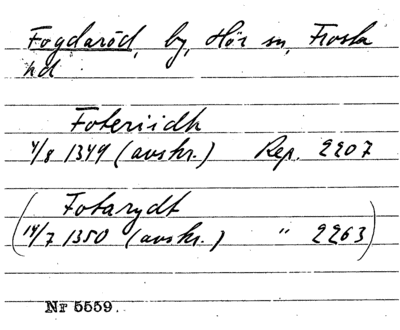 Fogdaröd, by, Hör sn, Frosta
hd
Foteriidh
4/8 1349 (avskr.) Rep. 2207
(Fotarydt
14/7 1350 (avskr.) " 2263)
Nr 5559.